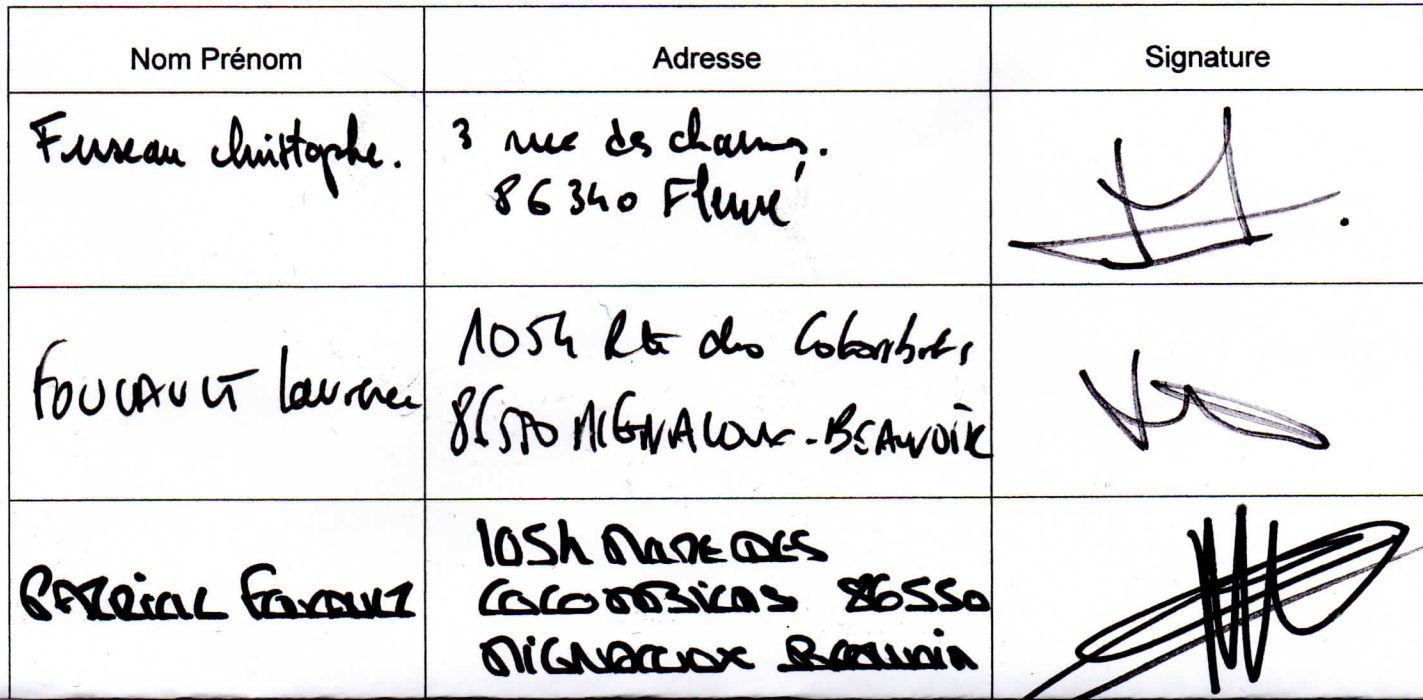 Nom Prénom
Adresse
Signature
Fuseau christophe.
3 rue des charmes.
86340 Fleuré
FOUCAULT Laurence
1054 Rte des Colombiers
86550 MIGNALOUX-BEAUVOIR
1054
86550
MIGNALOUX Beauvoir